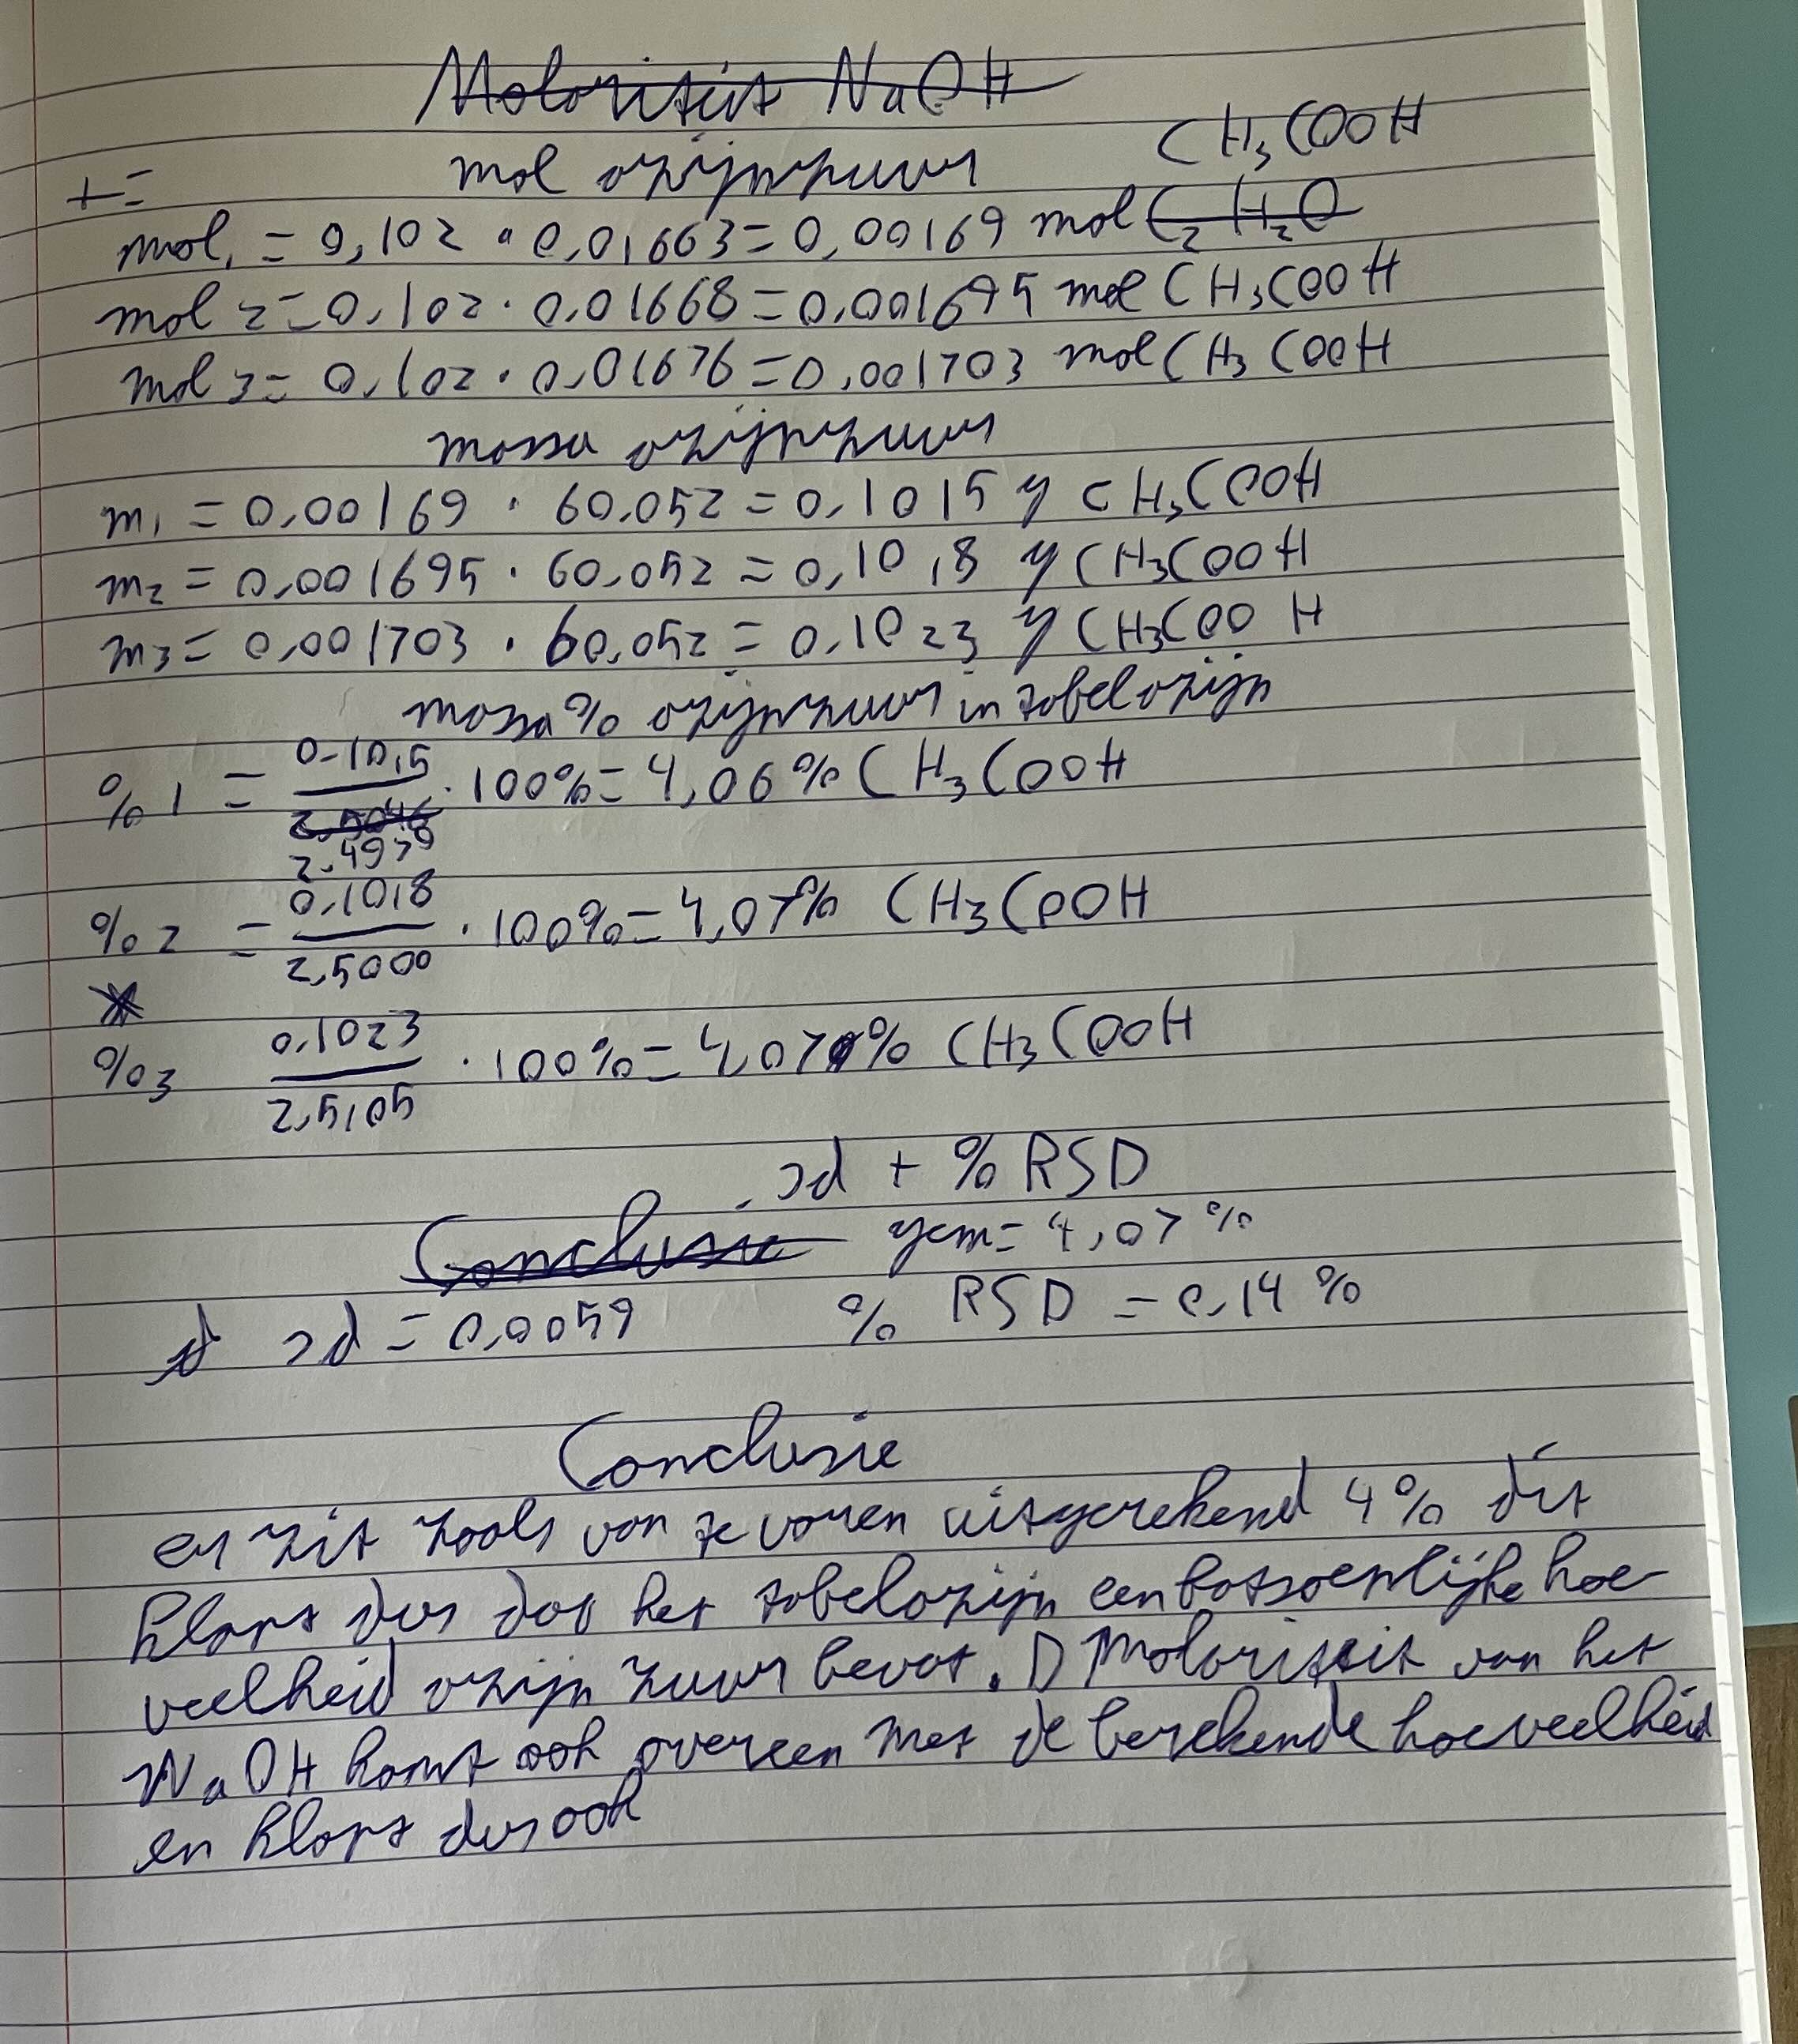 Molariteit NaOH
CH3COOH
mol azijnzuur
mol1 = 0,102 • 0,01663 = 0,00169 mol C2H2O
mol 2 = 0,102 · 0,01668 = 0,001695 mol CH3COOH
mol 3 = 0,102 · 0,01676 = 0,001703 mol CH3COOH
massa azijnzuur
m1 = 0,00169 · 60,052 = 0,1015 g CH3COOH
m2 = 0,001695 · 60,052 = 0,1018 g CH3COOH
m3 = 0,001703 · 60,052 = 0,1023 g CH3COOH
massa % azijnzuur in tafelazijn
%1 = 0,1015 / 2,4979 · 100% = 4,06% CH3COOH
%2 = 0,1018 / 2,5000 · 100% = 4,07% CH3COOH
%3 0,1023 / 2,5105 · 100% = 4,07% CH3COOH
sd + % RSD
Conclusie gem = 4,07%
sd = 0,0059 % RSD = 0,14 %
Conclusie
er zit zoals van te voren uitgerekend 4% dit
klopt dus dat het tafelazijn een fatsoenlijke hoe-
veelheid azijn zuur bevat. D Molariteit van het
NaOH komt ook overeen met de berekende hoeveelheid
en klopt dus ook